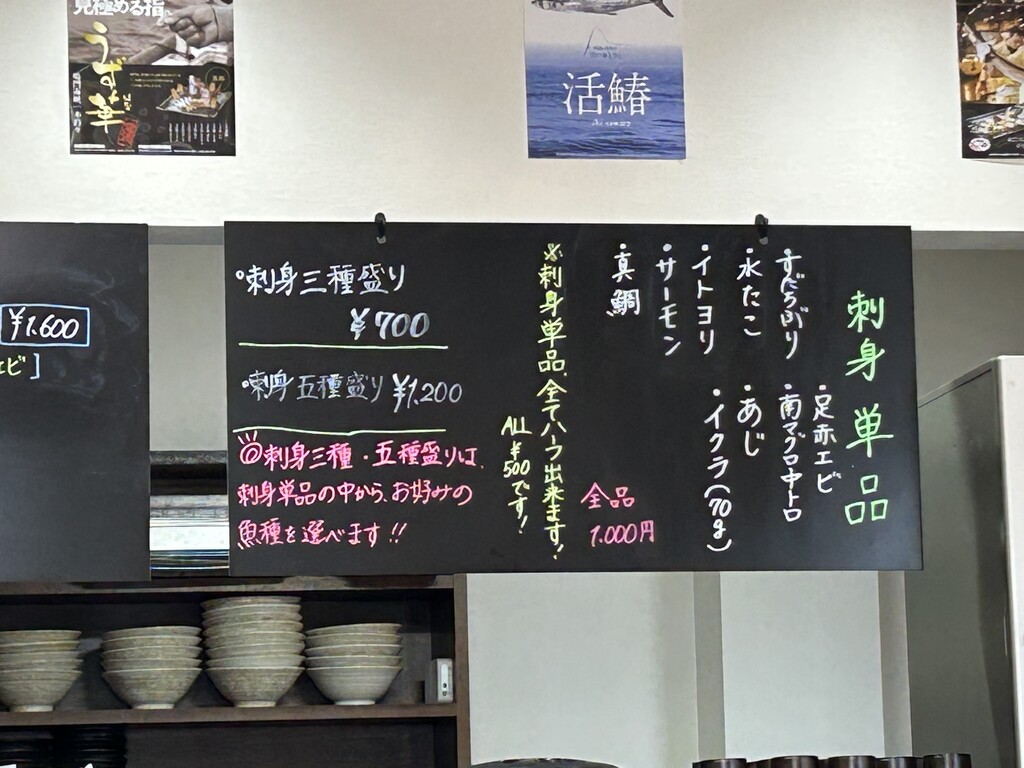 見極める指。
うず華
活鰆
¥1.600
エビ]
刺身 単品
・すだちぶり
・水たこ
・イトヨリ
・サーモン
・真鯛
・足赤エビ
・南マグロ中トロ
・あじ
・イクラ(70g)
全品
1.000円
※刺身単品、全てハーフ出来ます!
ALL ¥500です!
・刺身三種盛り
¥700
・刺身五種盛り ¥1,200
◎刺身三種・五種盛りは、
刺身単品の中から、お好みの
魚種を選べます!!